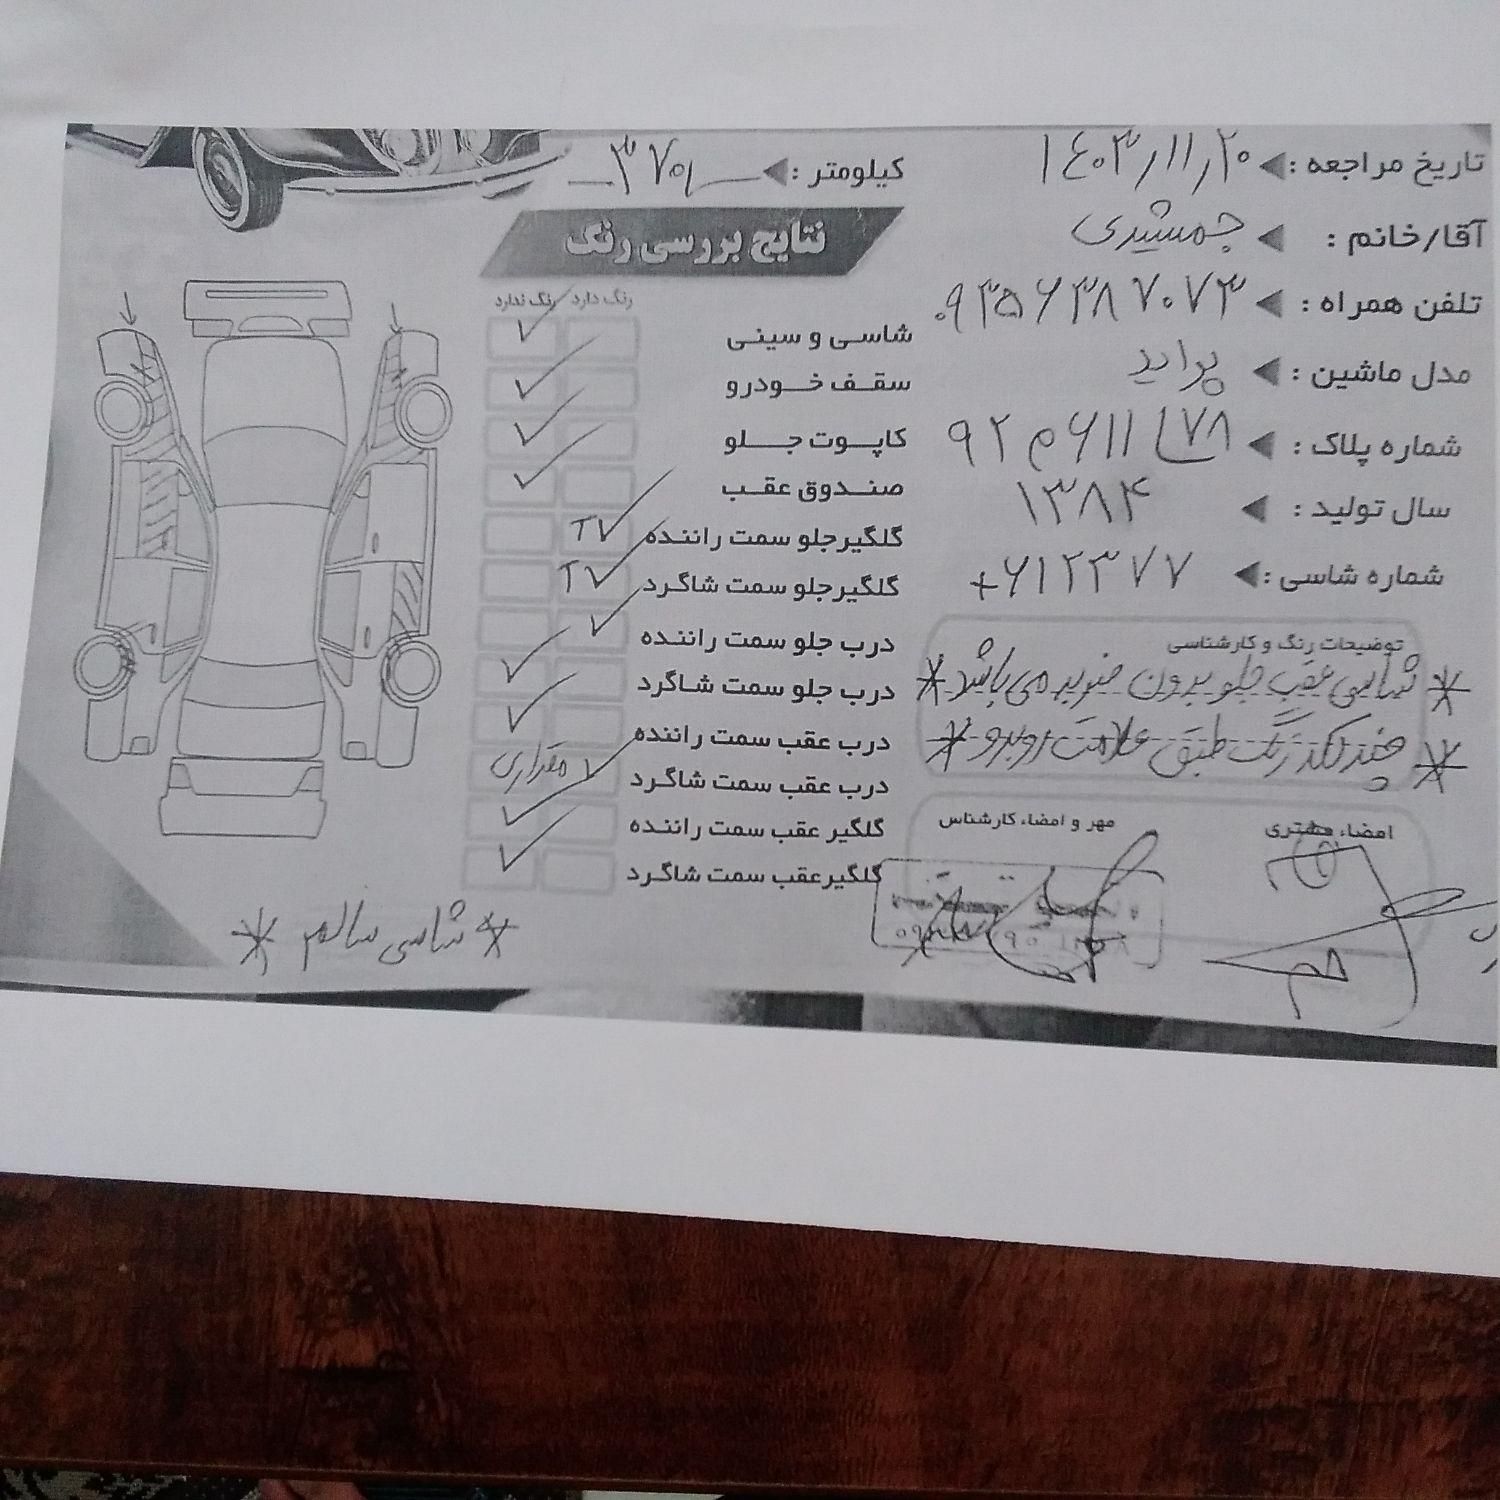 تاریخ مراجعه : ۱۴۰۳/۱۱/۲۰
آقا/خانم : جمشیدی
تلفن همراه : ۰۹۳۵۶۳۸۷۰۷۳
مدل ماشین : پراید
شماره پلاک : ۹۲م۶۱۱ ل۷۸
سال تولید : ۱۳۸۴
شماره شاسی : ۶۱۲۳۷۷+
توضیحات رنگ و کارشناسی
* شاسی عقب جلو بدون ضربه می باشد *
* چند لکه رنگ طبق علامت روبرو *
امضاء مشتری
مهر و امضاء کارشناس
کیلومتر :
نتایج بررسی رنگ
رنگ دارد رنگ ندارد
شاسی و سینی ✓
سقف خودرو ✓
کاپوت جلو ✓
صندوق عقب ✓
گلگیر جلو سمت راننده ✓ ۲
گلگیر جلو سمت شاگرد ✓ ۲
درب جلو سمت راننده ✓
درب جلو سمت شاگرد ✓
درب عقب سمت راننده ✓
درب عقب سمت شاگرد ✓ مقداری
گلگیر عقب سمت راننده ✓
گلگیر عقب سمت شاگرد ✓
* شاسی سالم *